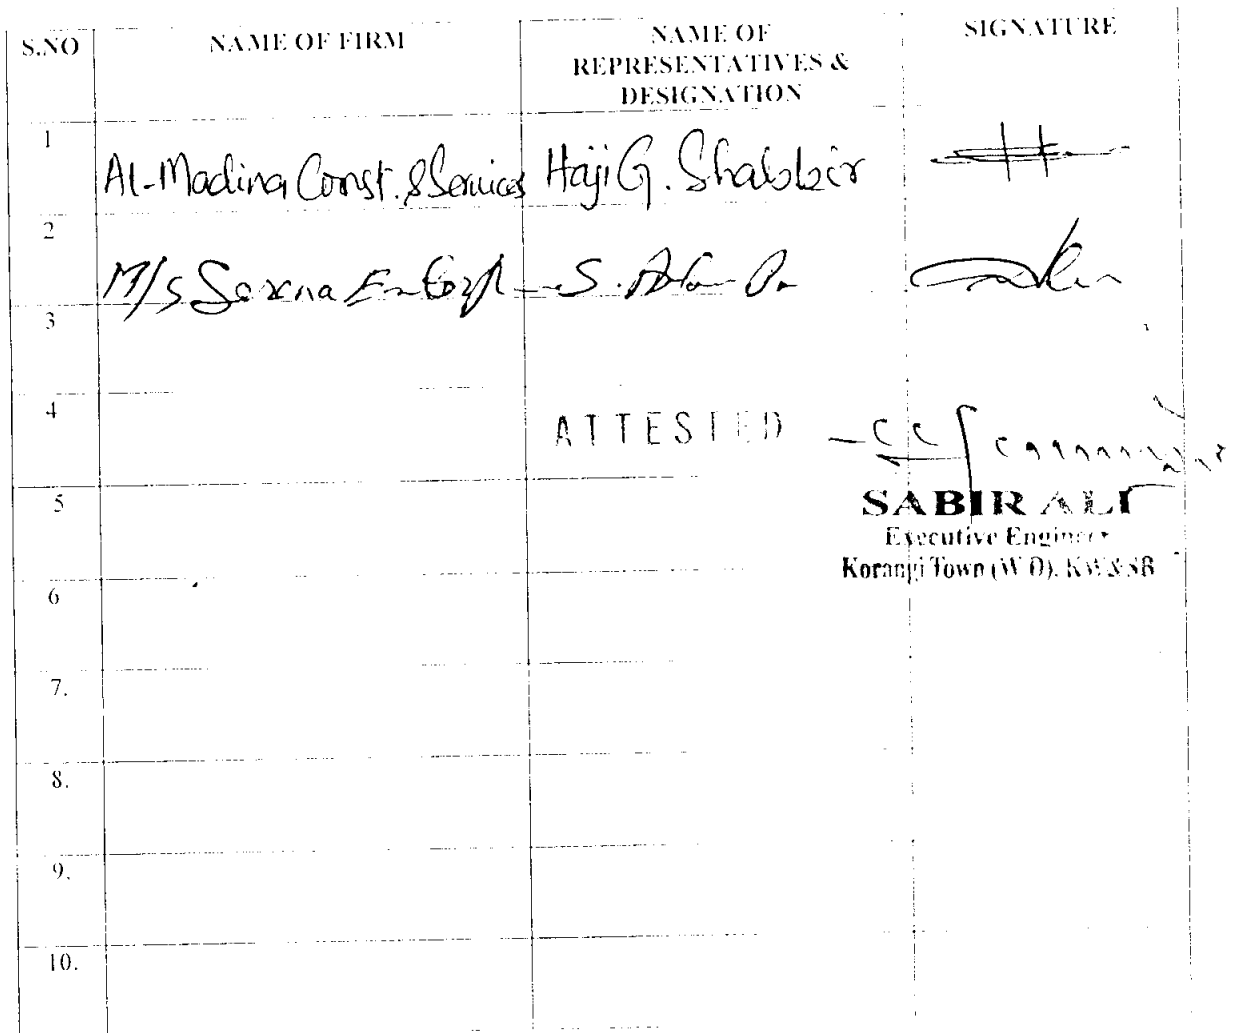 S.NO NAME OF FIRM NAME OF REPRESENTATIVES & DESIGNATION SIGNATURE
1 Al-Madina Const. & Services Haji G. Shabbir
2 M/S S.
3
4 ATTESTED
5 SABIR ALI
Executive Engineer
Korangi Town (W D), KW&SB
6
7.
8.
9.
10.